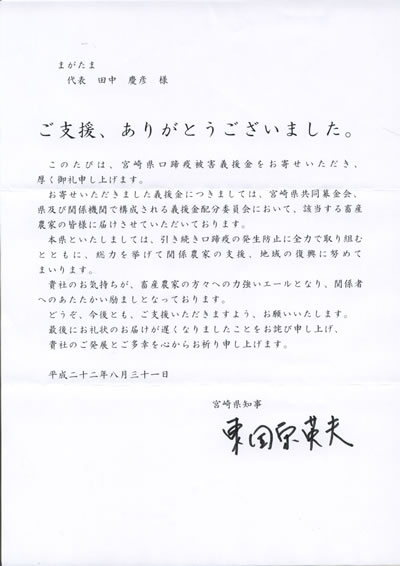 まがたま
代表 田中 慶彦 様
ご支援、ありがとうございました。
このたびは、宮崎県口蹄疫被害義援金をお寄せいただき、
厚く御礼申し上げます。
お寄せいただきました義援金につきましては、宮崎県共同募金会、
県及び関係機関で構成される義援金配分委員会において、該当する畜産
農家の皆様に届けさせていただいております。
本県といたしましては、引き続き口蹄疫の発生防止に全力で取り組む
とともに、総力を挙げて関係農家の支援、地域の復興に努めて
まいります。
貴社のお気持ちが、畜産農家の方々への力強いエールとなり、関係者
へのあたたかい励ましとなっております。
どうぞ、今後とも、ご支援いただきますよう、お願いいたします。
最後にお礼状のお届けが遅くなりましたことをお詫び申し上げ、
貴社のご発展とご多幸を心からお祈り申し上げます。
平成二十二年八月三十一日
宮崎県知事
東国原英夫